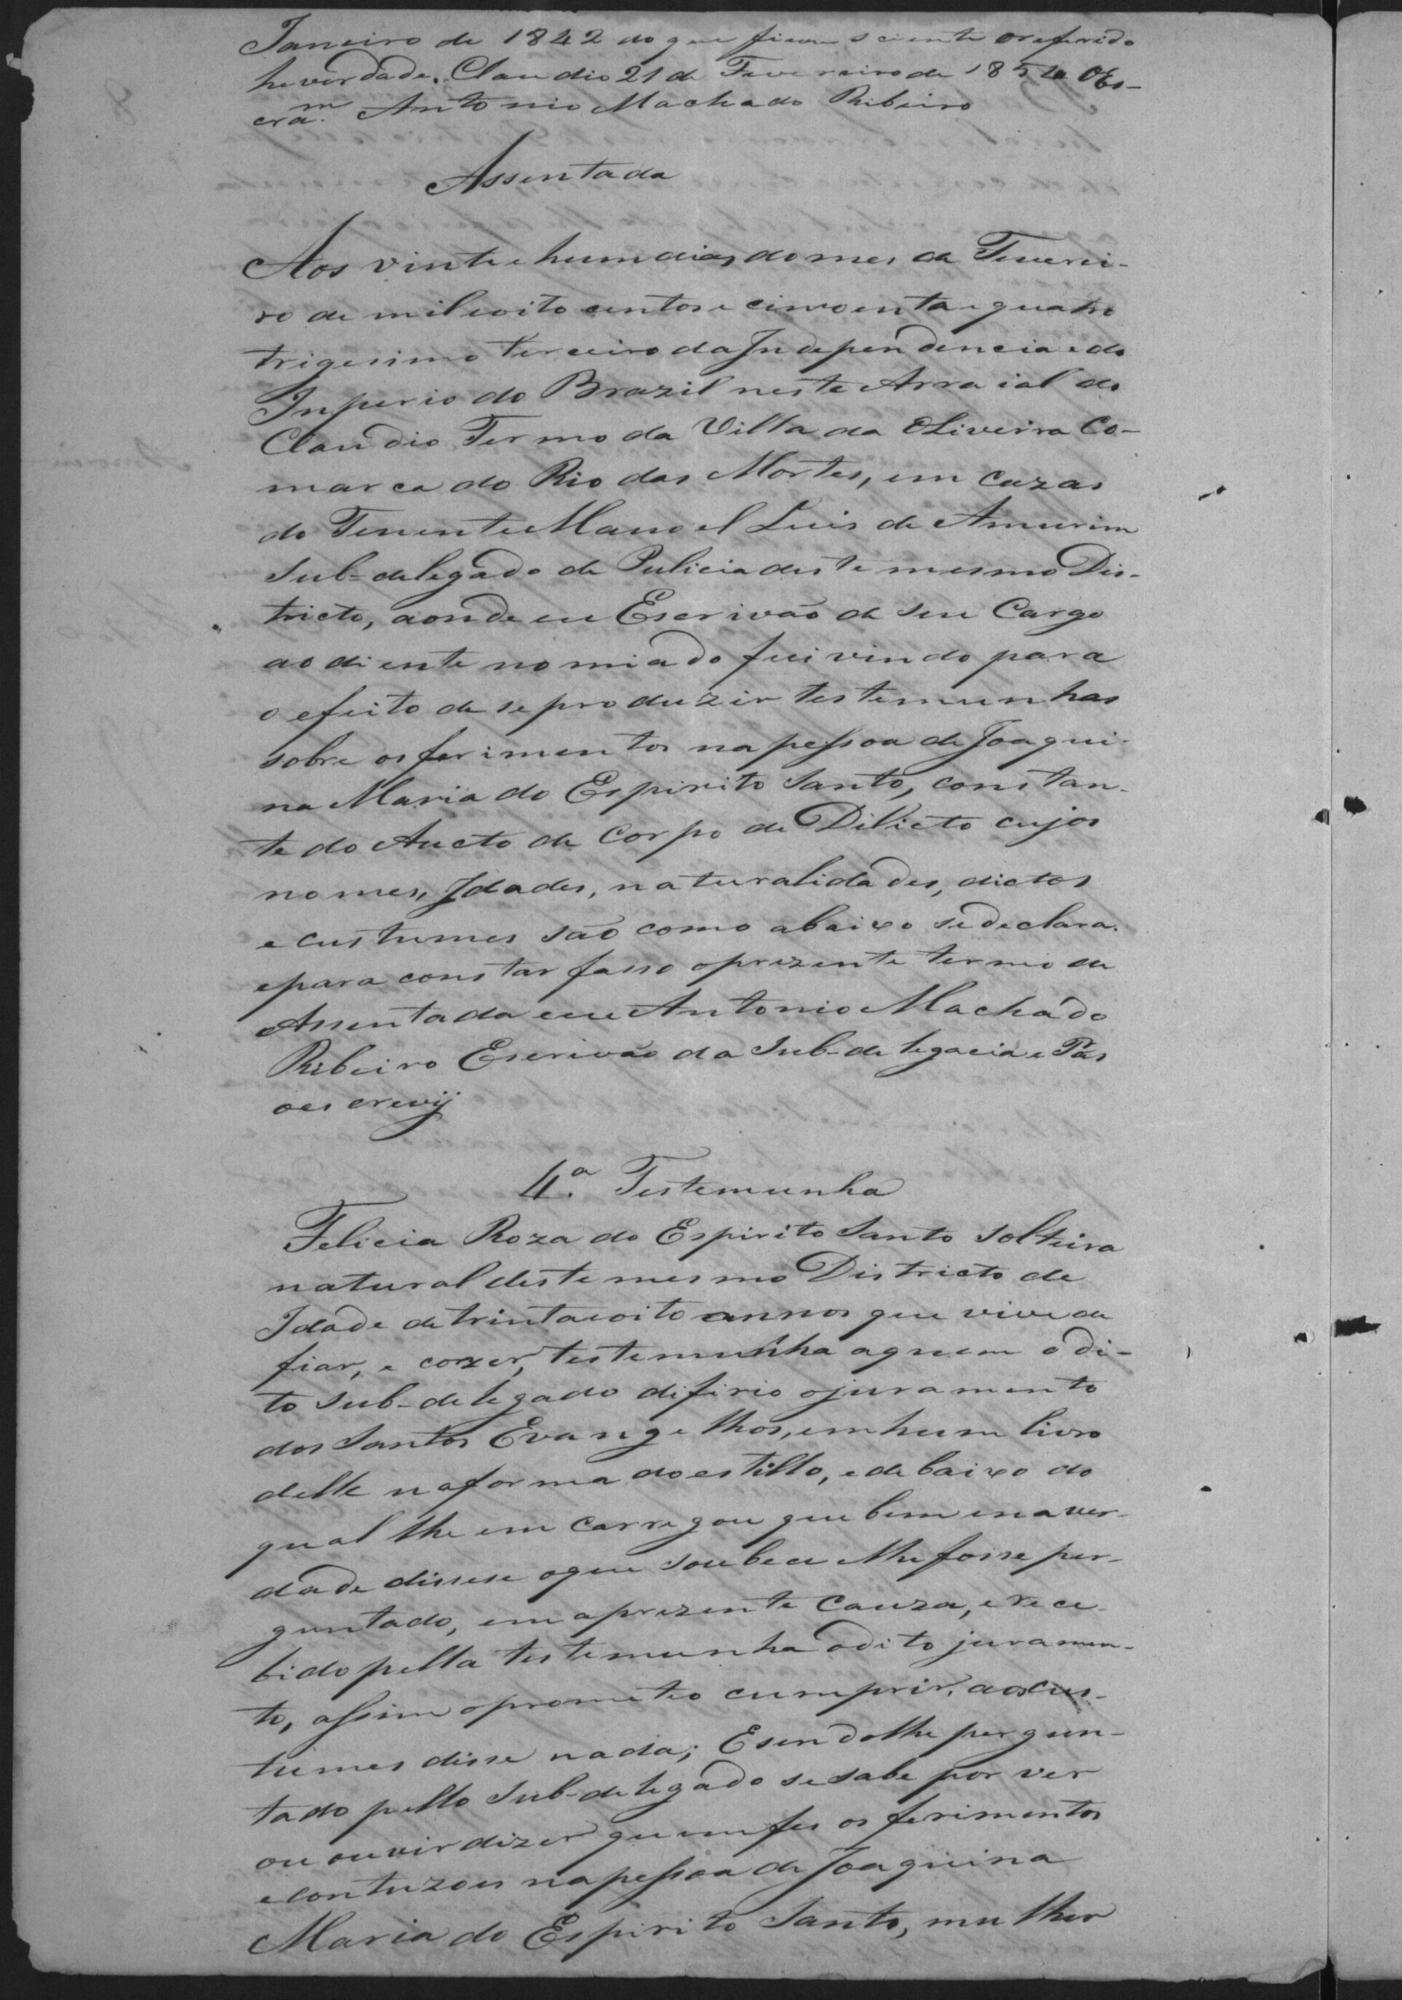 Janeiro de 1842 do que ficou sciente oreferido
he verdade. Claudio 21 de Fevereiro de 1854 OEs-
cram. Antonio Machado Ribeiro
Assentada
Aos vinte e hum dias do mes de Feverei-
ro de mil e oito centos e cincoenta e quatro
trigesimo terceiro da Independencia e do
Inperio do Brazil neste Arraial do
Claudio Termo da Villa da Oliveira Co-
marca do Rio das Mortes, em cazas
do Tenente Manoel Luis de Amurim
Sub-delegado de Pulicia deste mesmo Dis-
tricto, aonde eu Escrivão de seu Cargo
ao diente nomiado fui vindo para
o efeito de se produzir testemunhas
sobre os ferimentos na pessoa de Joaqui-
na Maria do Espirito Santo, constan-
te do Aucto de Corpo de Dilicto cujos
nomes, Idades, naturalidades, dictos
e custumes são como abaixo se declara.
epara constar fasso oprezente termo de
Assentada eu Antonio Machado
Ribeiro Escrivão da Sub-delegacia e Pas
oescrevij
4.ª Testemunha
Felicia Roza do Espirito Santo Solteira
natural deste mesmo Districto de
Idade de trinta e oito annos que vive de
fiar, e cozer, testemunha aquem o di-
to Sub-delegado difirio ojuramento
dos Santos Evangelhos, em hum livro
delle na forma do estillo, e debaixo do
qual lhe em carregou que bem e na ver-
dade dissese oque soubece e lhe fosse per-
guntado, em aprezente Cauza, e rece-
bido pella testemunha odito juramen-
to, assim oprometeo cumprir, aos cus-
tumes disse nada; E sendo lhe pergun-
tado pello Sub-delegado se sabe por ver
ou ouvir dizer quem fes os ferimentos
e contuzois na pessoa de Joaquina
Maria do Espirito Santo, mulher